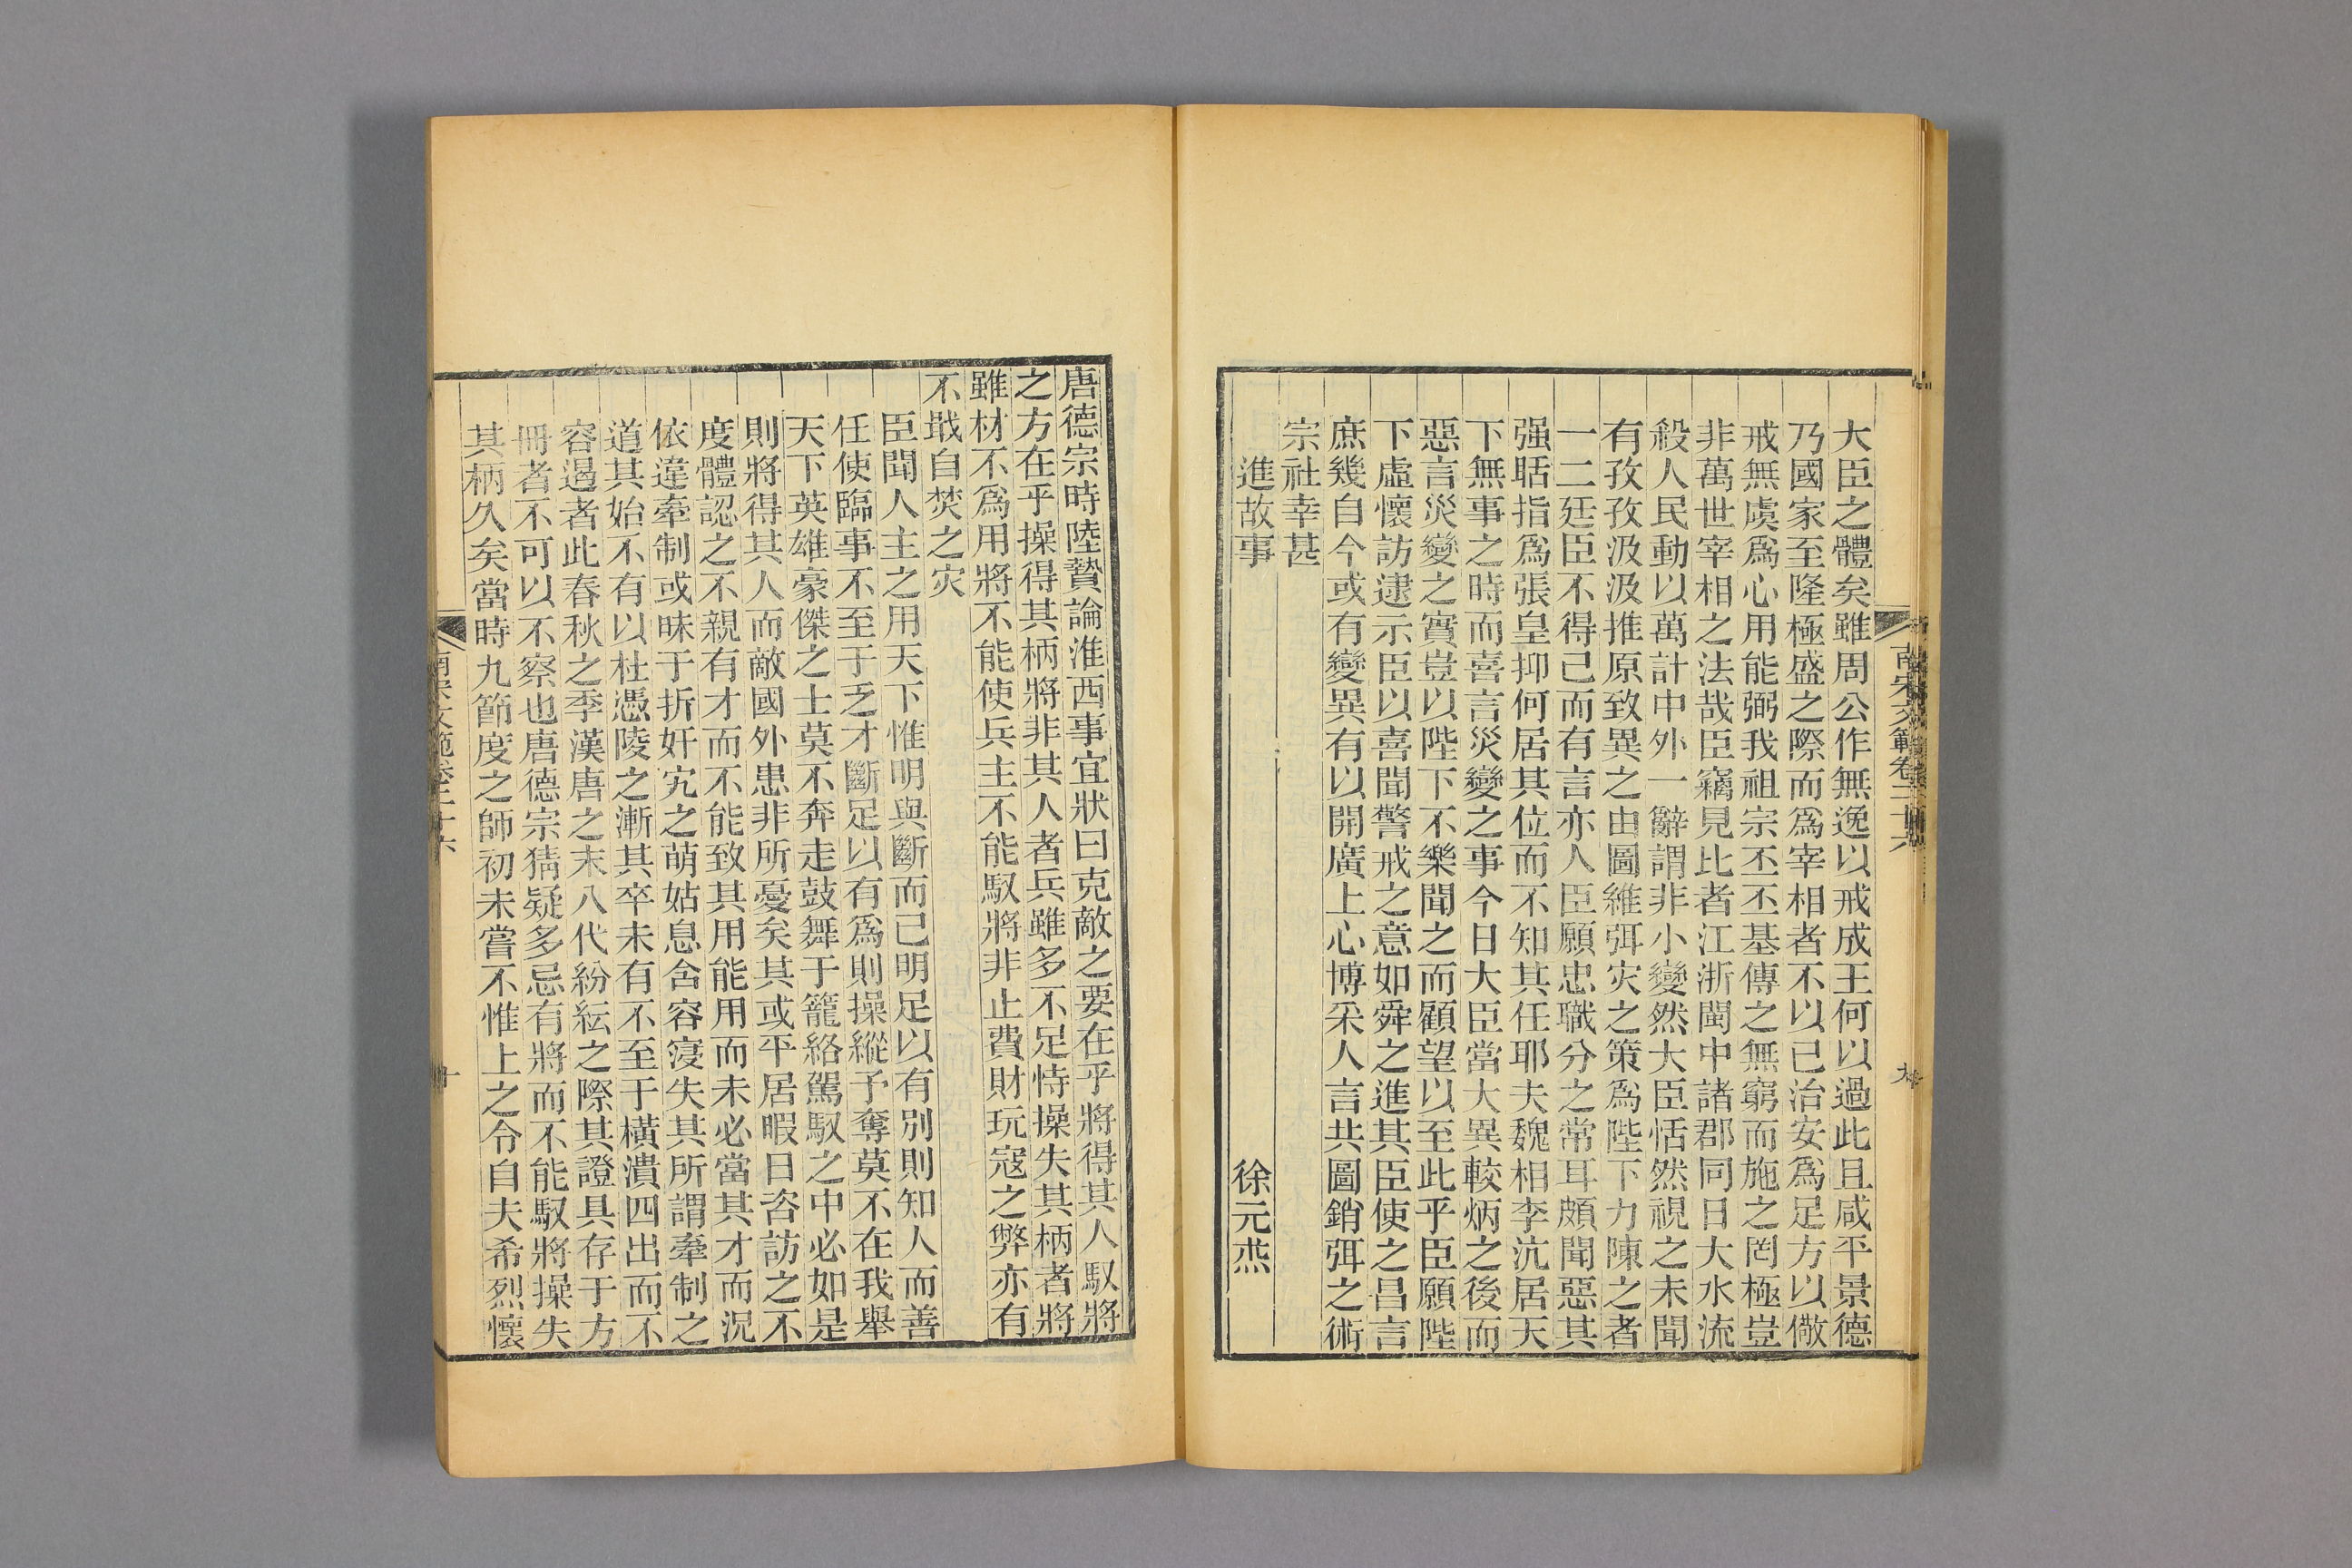 大臣之體矣雖周公作無逸以戒成王何以過此且咸平景德
乃國家至隆極盛之際而爲宰相者不以已治安爲足方以儆
戒無虞爲心用能弼我祖宗丕丕基傳之無窮而施之罔極豈
非萬世宰相之法哉臣竊見比者江浙閩中諸郡同日大水流
殺人民動以萬計中外一辭謂非小變然大臣恬然視之未聞
有孜孜汲汲推原致異之由圖維弭灾之策爲陛下力陳之者
一二廷臣不得已而有言亦人臣願忠職分之常耳頗聞惡其
强聒指爲張皇抑何居其位而不知其任耶夫魏相李沆居天
下無事之時而喜言災變之事今日大臣當大異較炳之後而
惡言災變之實豈以陛下不樂聞之而顧望以至此乎臣願陛
下虛懷訪逮示臣以喜聞警戒之意如舜之進其臣使之昌言
庶幾自今或有變異有以開廣上心博采人言共圖銷弭之術
宗社幸甚
進故事 徐元杰
唐德宗時陸贄論淮西事宜狀曰克敵之要在乎將得其人馭將
之方在乎操得其柄將非其人者兵雖多不足恃操失其柄者將
雖材不爲用將不能使兵主不能馭將非止費財玩寇之弊亦有
不戢自焚之灾
臣聞人主之用天下惟明與斷而已明足以有別則知人而善
任使臨事不至于乏才斷足以有爲則操縱予奪莫不在我舉
天下英雄豪傑之士莫不奔走鼓舞于籠絡駕馭之中必如是
則將得其人而敵國外患非所憂矣其或平居暇日咨訪之不
度體認之不親有才而不能致其用能用而未必當其才而況
依違牽制或昧于折奸宄之萌姑息含容寖失其所謂牽制之
道其始不有以杜憑陵之漸其卒未有不至于橫潰四出而不
容遏者此春秋之季漢唐之末八代紛紜之際其證具存于方
冊者不可以不察也唐德宗猜疑多忌有將而不能馭將操失
其柄久矣當時九節度之師初未嘗不惟上之令自夫希烈懷